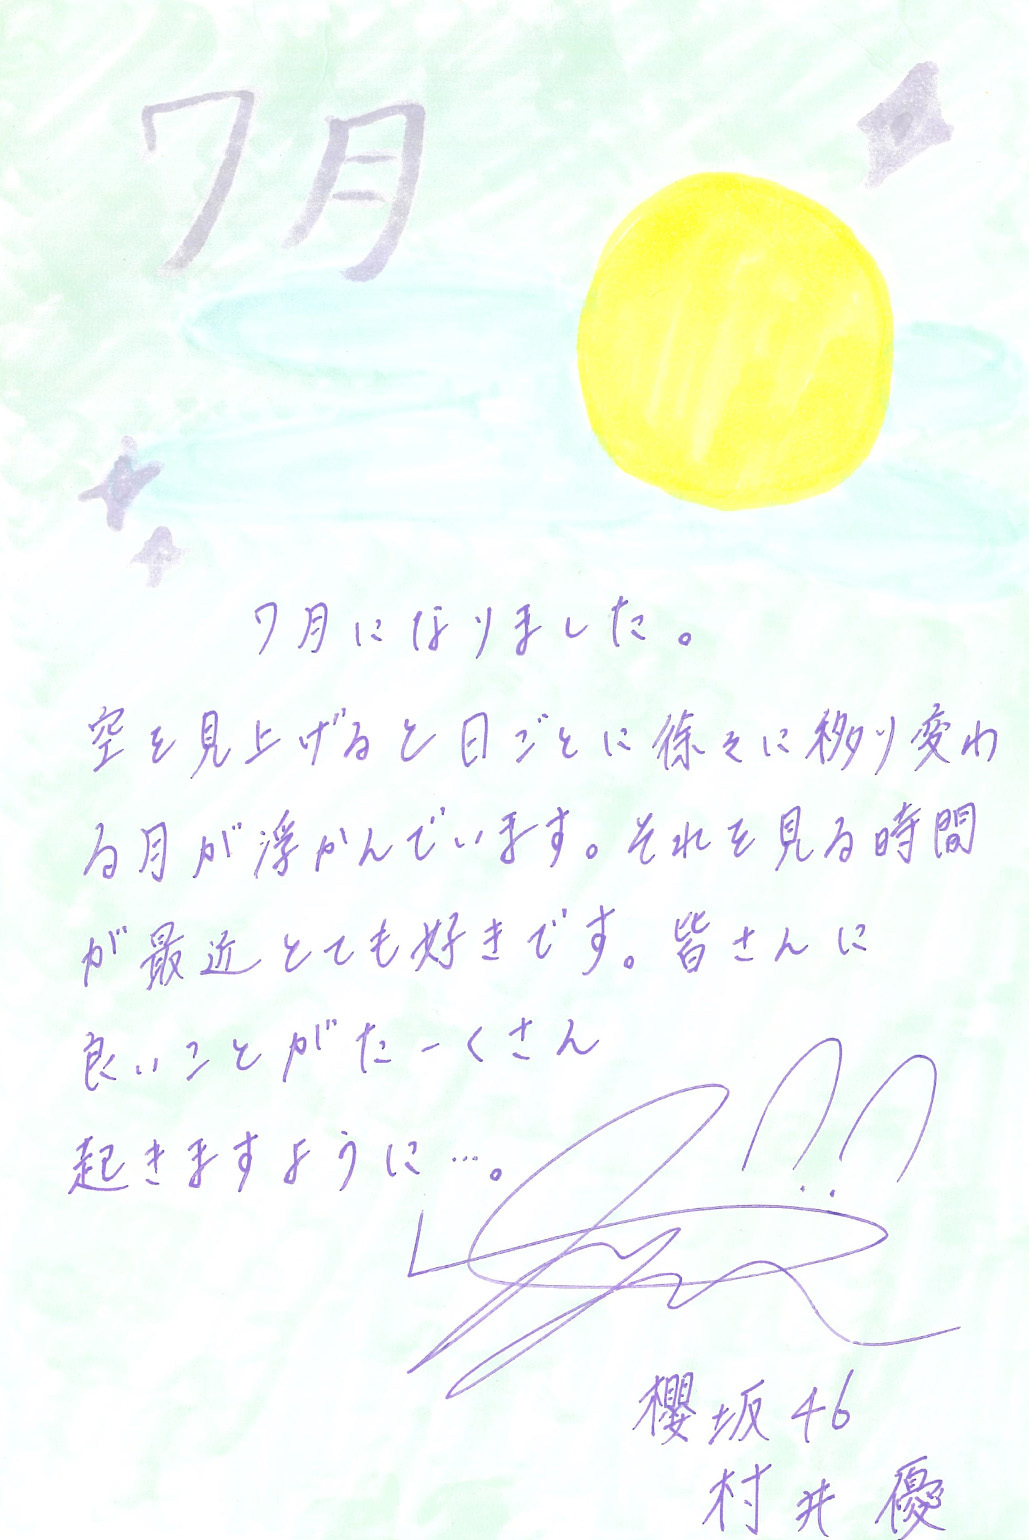 7月
7月になりました。
空を見上げると日ごとに徐々に移り変わ
る月が浮かんでいます。それを見る時間
が最近とても好きです。皆さんに
良いことがたーくさん
起きますように…。
櫻坂46
村井優